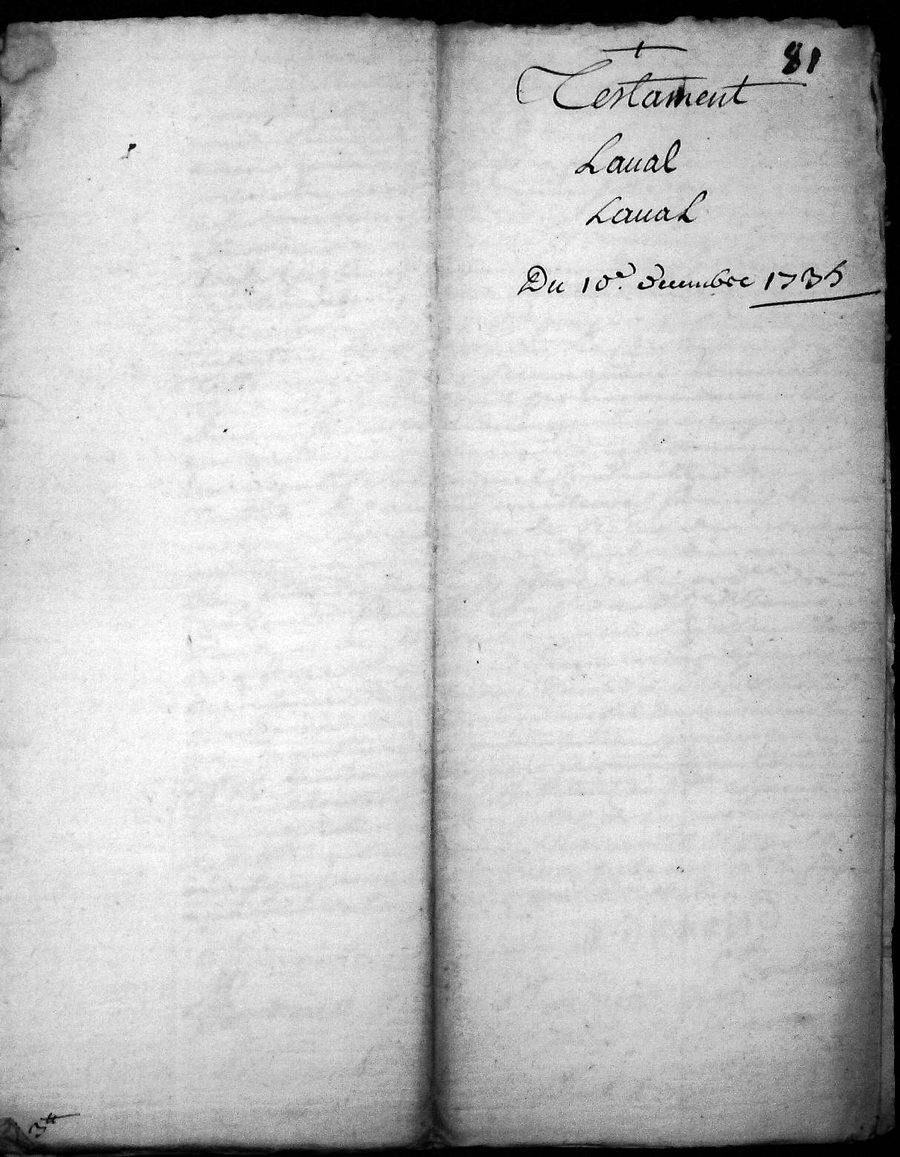 81
Testament
Laual
Laual
Du 10e. decembre 1735
3tt